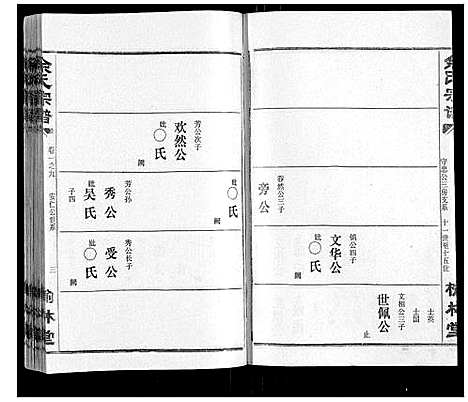 余氏宗谱
守忠公三房支系
十一世至十五世
榆林堂
士英
士韶
文相公三子
世佩公
止
镇公四子
文华公
妣〇氏
阙
春然公三子
旁公
芳公次子
欢然公
妣〇氏
阙
妣〇氏
阙
芳公孙
秀公
妣吴氏
子四
秀公长子
受公
妣〇氏
阙
余氏宗谱
卷一之九
安仁公世系
三
榆林堂